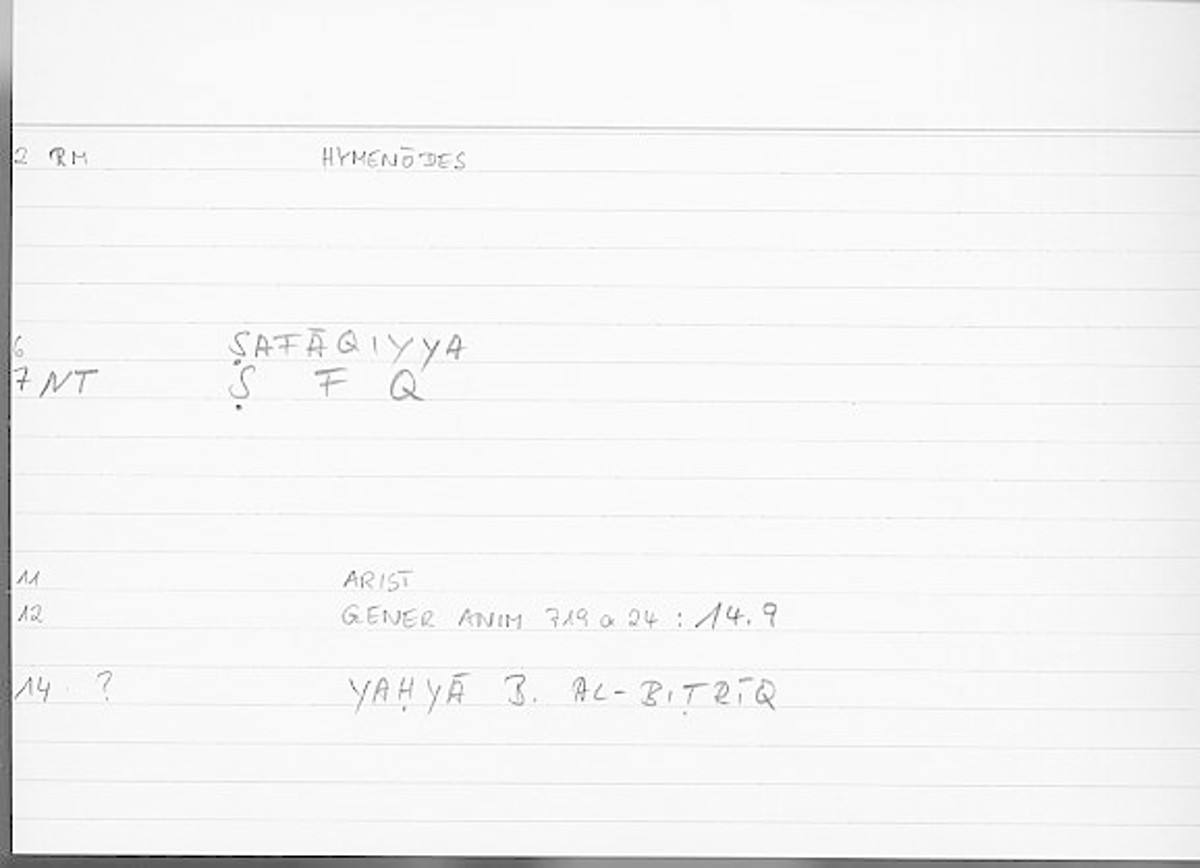 2 RM HYMENŌDES
6 ṢAFĀQIYYA
7 NT Ṣ F Q
11 ARIST
12 GENER ANIM 719 a 24 : 14.9
14 ? YAḤYĀ B. AL-BIṬRĪQ